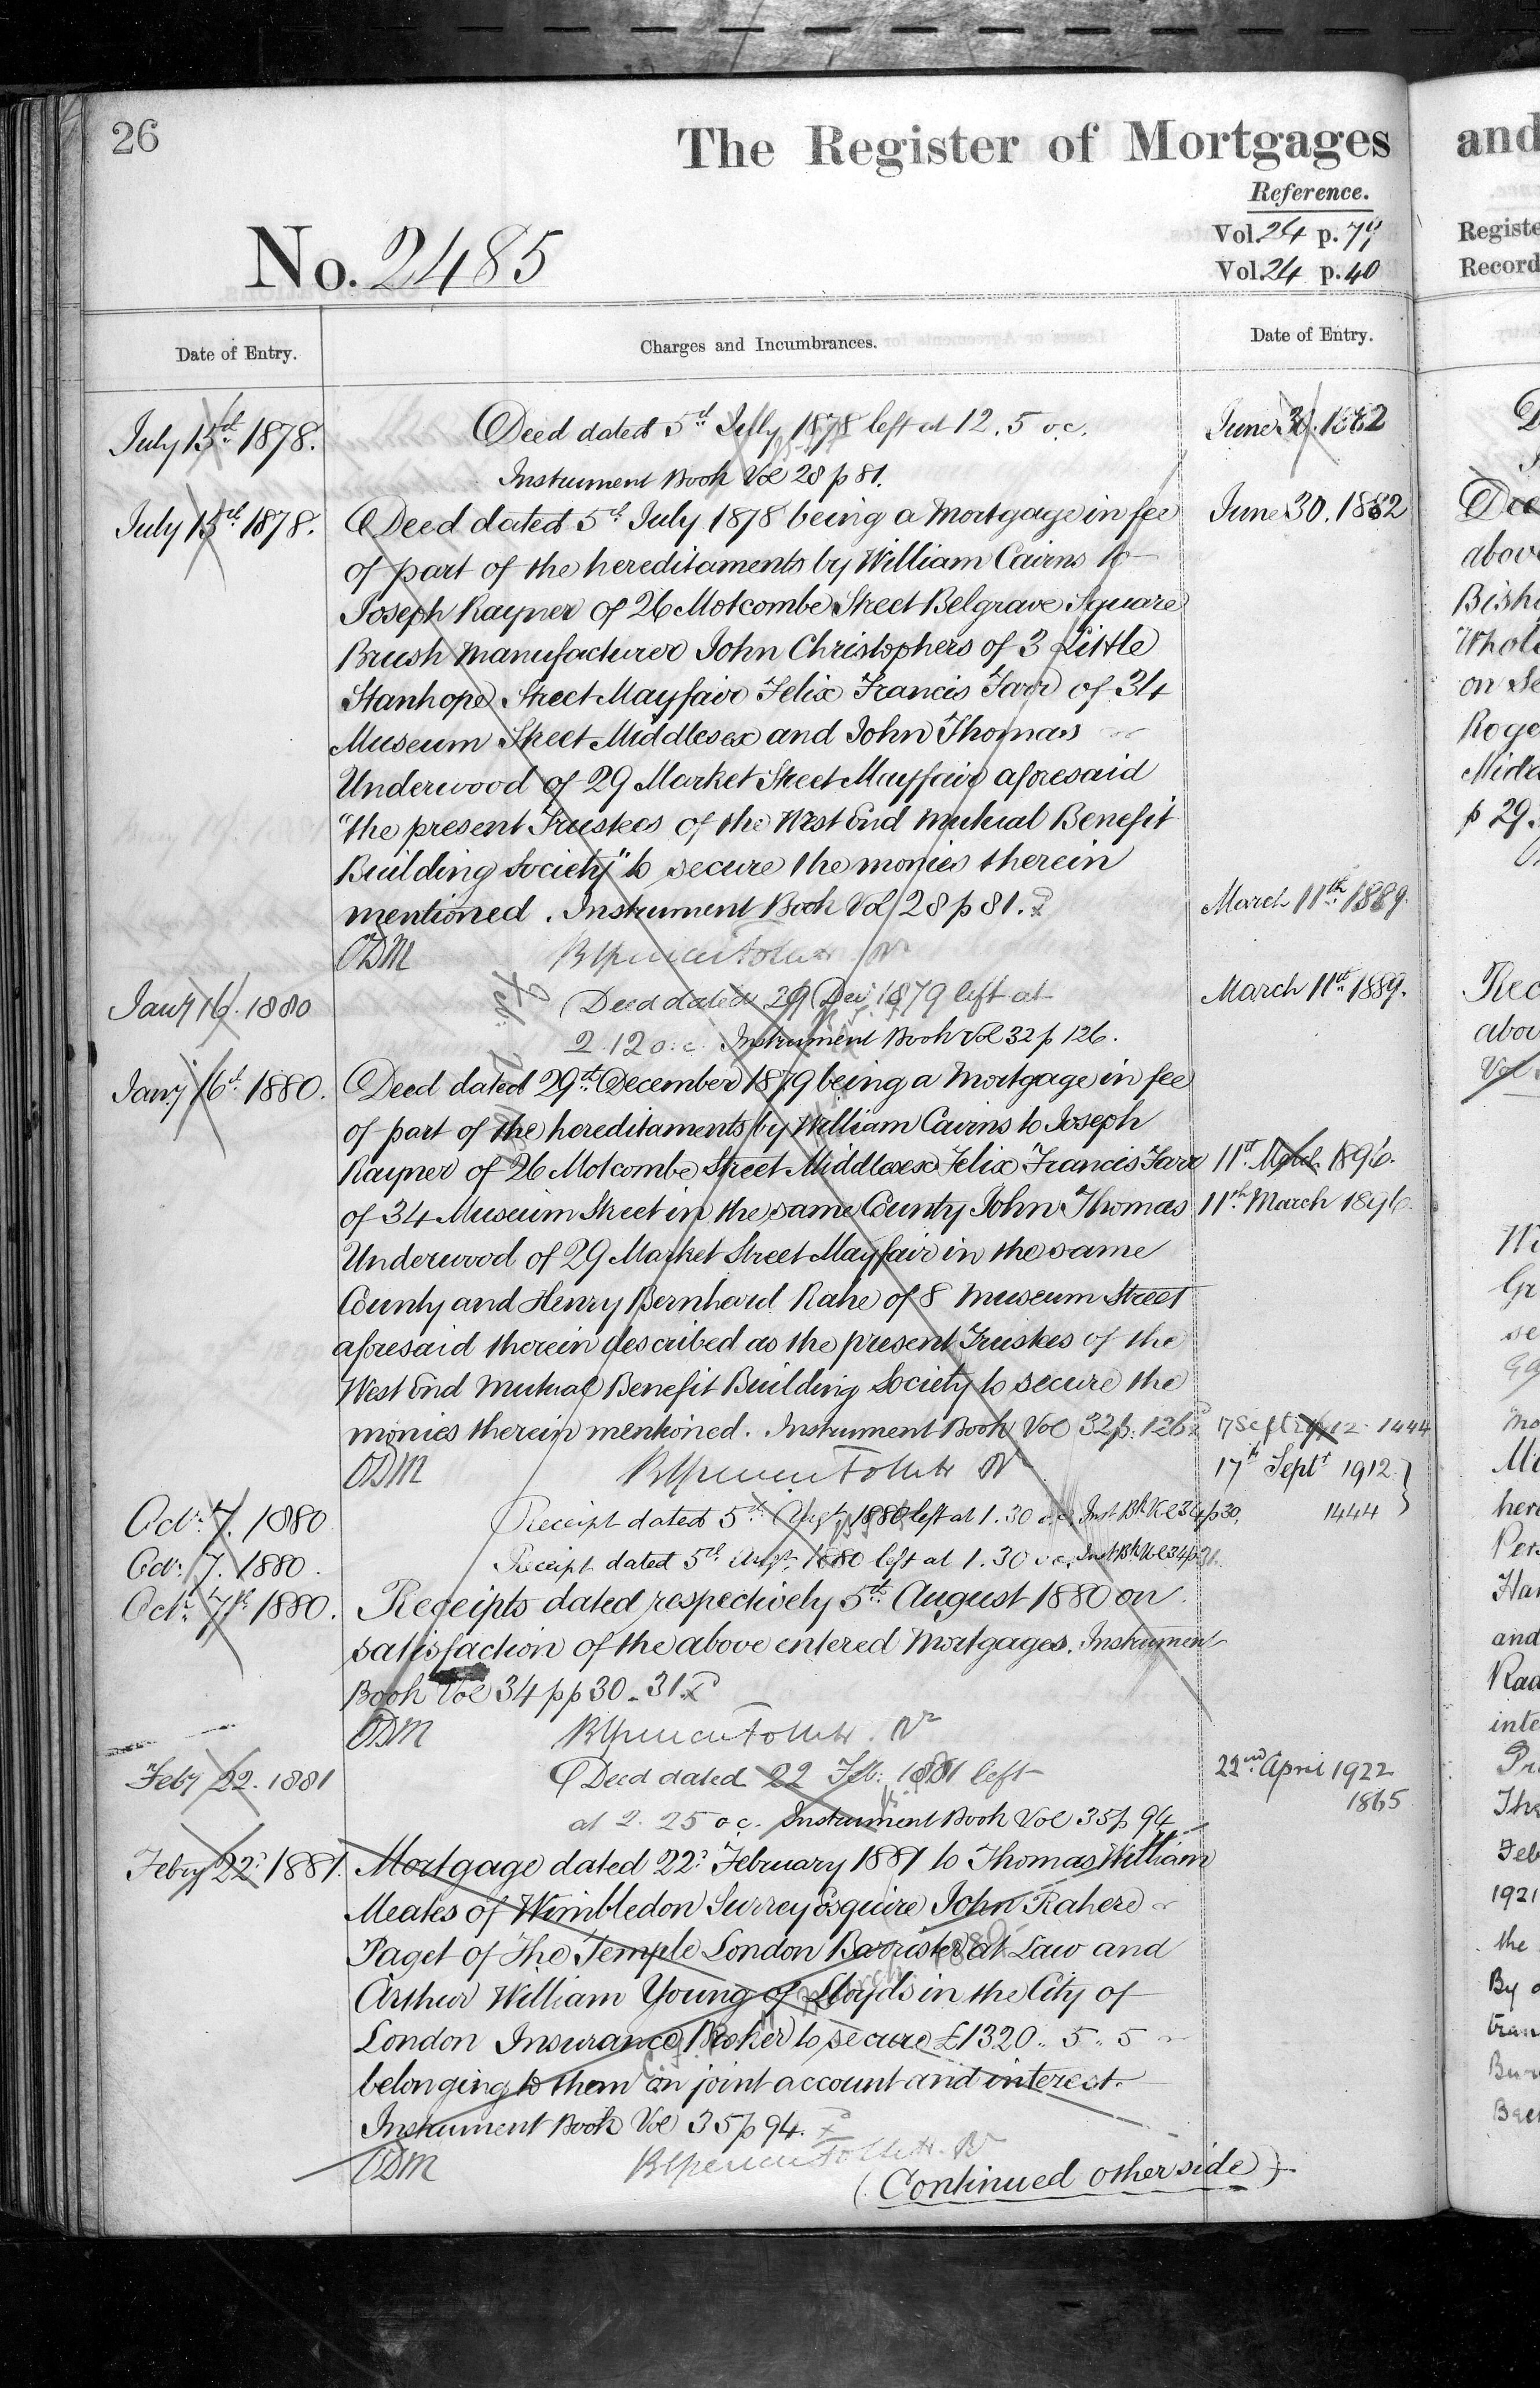 26
The Register of Mortgages
Reference.
No. 2485
Vol. 24 p.
Vol. 24 p. 40
Date of Entry.
Charges and Incumbrances.
Date of Entry.
July 15th 1878.
Deed dated 5th July 1878 left at 12.5 o.c.
Instrument Book Vol 28 p 81.
July 15th 1878.
Deed dated 5th July 1878 being a Mortgage in fee
of part of the hereditaments by William Cairns to
Joseph Rayner of 26 Motcombe Street Belgrave Square
Brush Manufacturer John Christophers of 3 Little
Stanhope Street Mayfair Felix Francis Farr of 34
Museum Street Middlesex and John Thomas
Underwood of 29 Market Street Mayfair aforesaid
"the present Trustees of the West End Mutual Benefit
Building Society" to secure the monies therein
mentioned. Instrument Book Vol 28 p 81.
ODM
Jany 16. 1880
Deed dated 29 Dec. 1879 left at
2.12 o.c. Instrument Book Vol 32 p 126.
Jany 16th 1880.
Deed dated 29th December 1879 being a Mortgage in fee
of part of the hereditaments by William Cairns to Joseph
Rayner of 26 Motcombe Street Middlesex Felix Francis Farr
of 34 Museum Street in the same County John Thomas
Underwood of 29 Market Street Mayfair in the same
County and Henry Bernhard Rahe of 8 Museum Street
aforesaid therein described as the present Trustees of the
West End Mutual Benefit Building Society to secure the
monies therein mentioned. Instrument Book Vol 32 p. 126
ODM
Octr. 7. 1880
Receipt dated 5th Augt. 1880 left at 1.30 o.c. Inst Bk Vol 34 p 30.
Octr. 7. 1880.
Receipt dated 5th Augt. 1880 left at 1.30 o.c. Inst Bk Vol 34 p 31.
Octr. 7th 1880.
Receipts dated respectively 5th August 1880 on
satisfaction of the above entered Mortgages. Instrument
Book Vol 34 pp 30. 31.
ODM
Feby 22. 1881
Deed dated 22 Feb: 1881 left
at 2.25 o.c. Instrument Book Vol 35 p 94
Febry 22d 1881.
Mortgage dated 22d February 1881 to Thomas William
Meates of Wimbledon Surrey Esquire John Rahere
Paget of The Temple London Barrister at Law and
Arthur William Young of Lloyds in the City of
London Insurance Broker to secure £1320.. 5.. 5
belonging to them on joint account and interest.
Instrument Book Vol 35 p 94.
ODM
(Continued other side)
June 30. 1882
June 30. 1882
March 11th 1889.
March 11th 1889.
11th March 1896.
11th March 1896.
17 Sept 1912. 1444
17th Septr 1912
1444
22nd April 1922
1865
and
Registe
Record
above
Bish
Whole
on Se
Roge
Midd
p 29.
Rec
abov
Vol
Gr
se
here
Per
Ha
and
Rad
inte
Pr
Feb
1921
the
By
tran